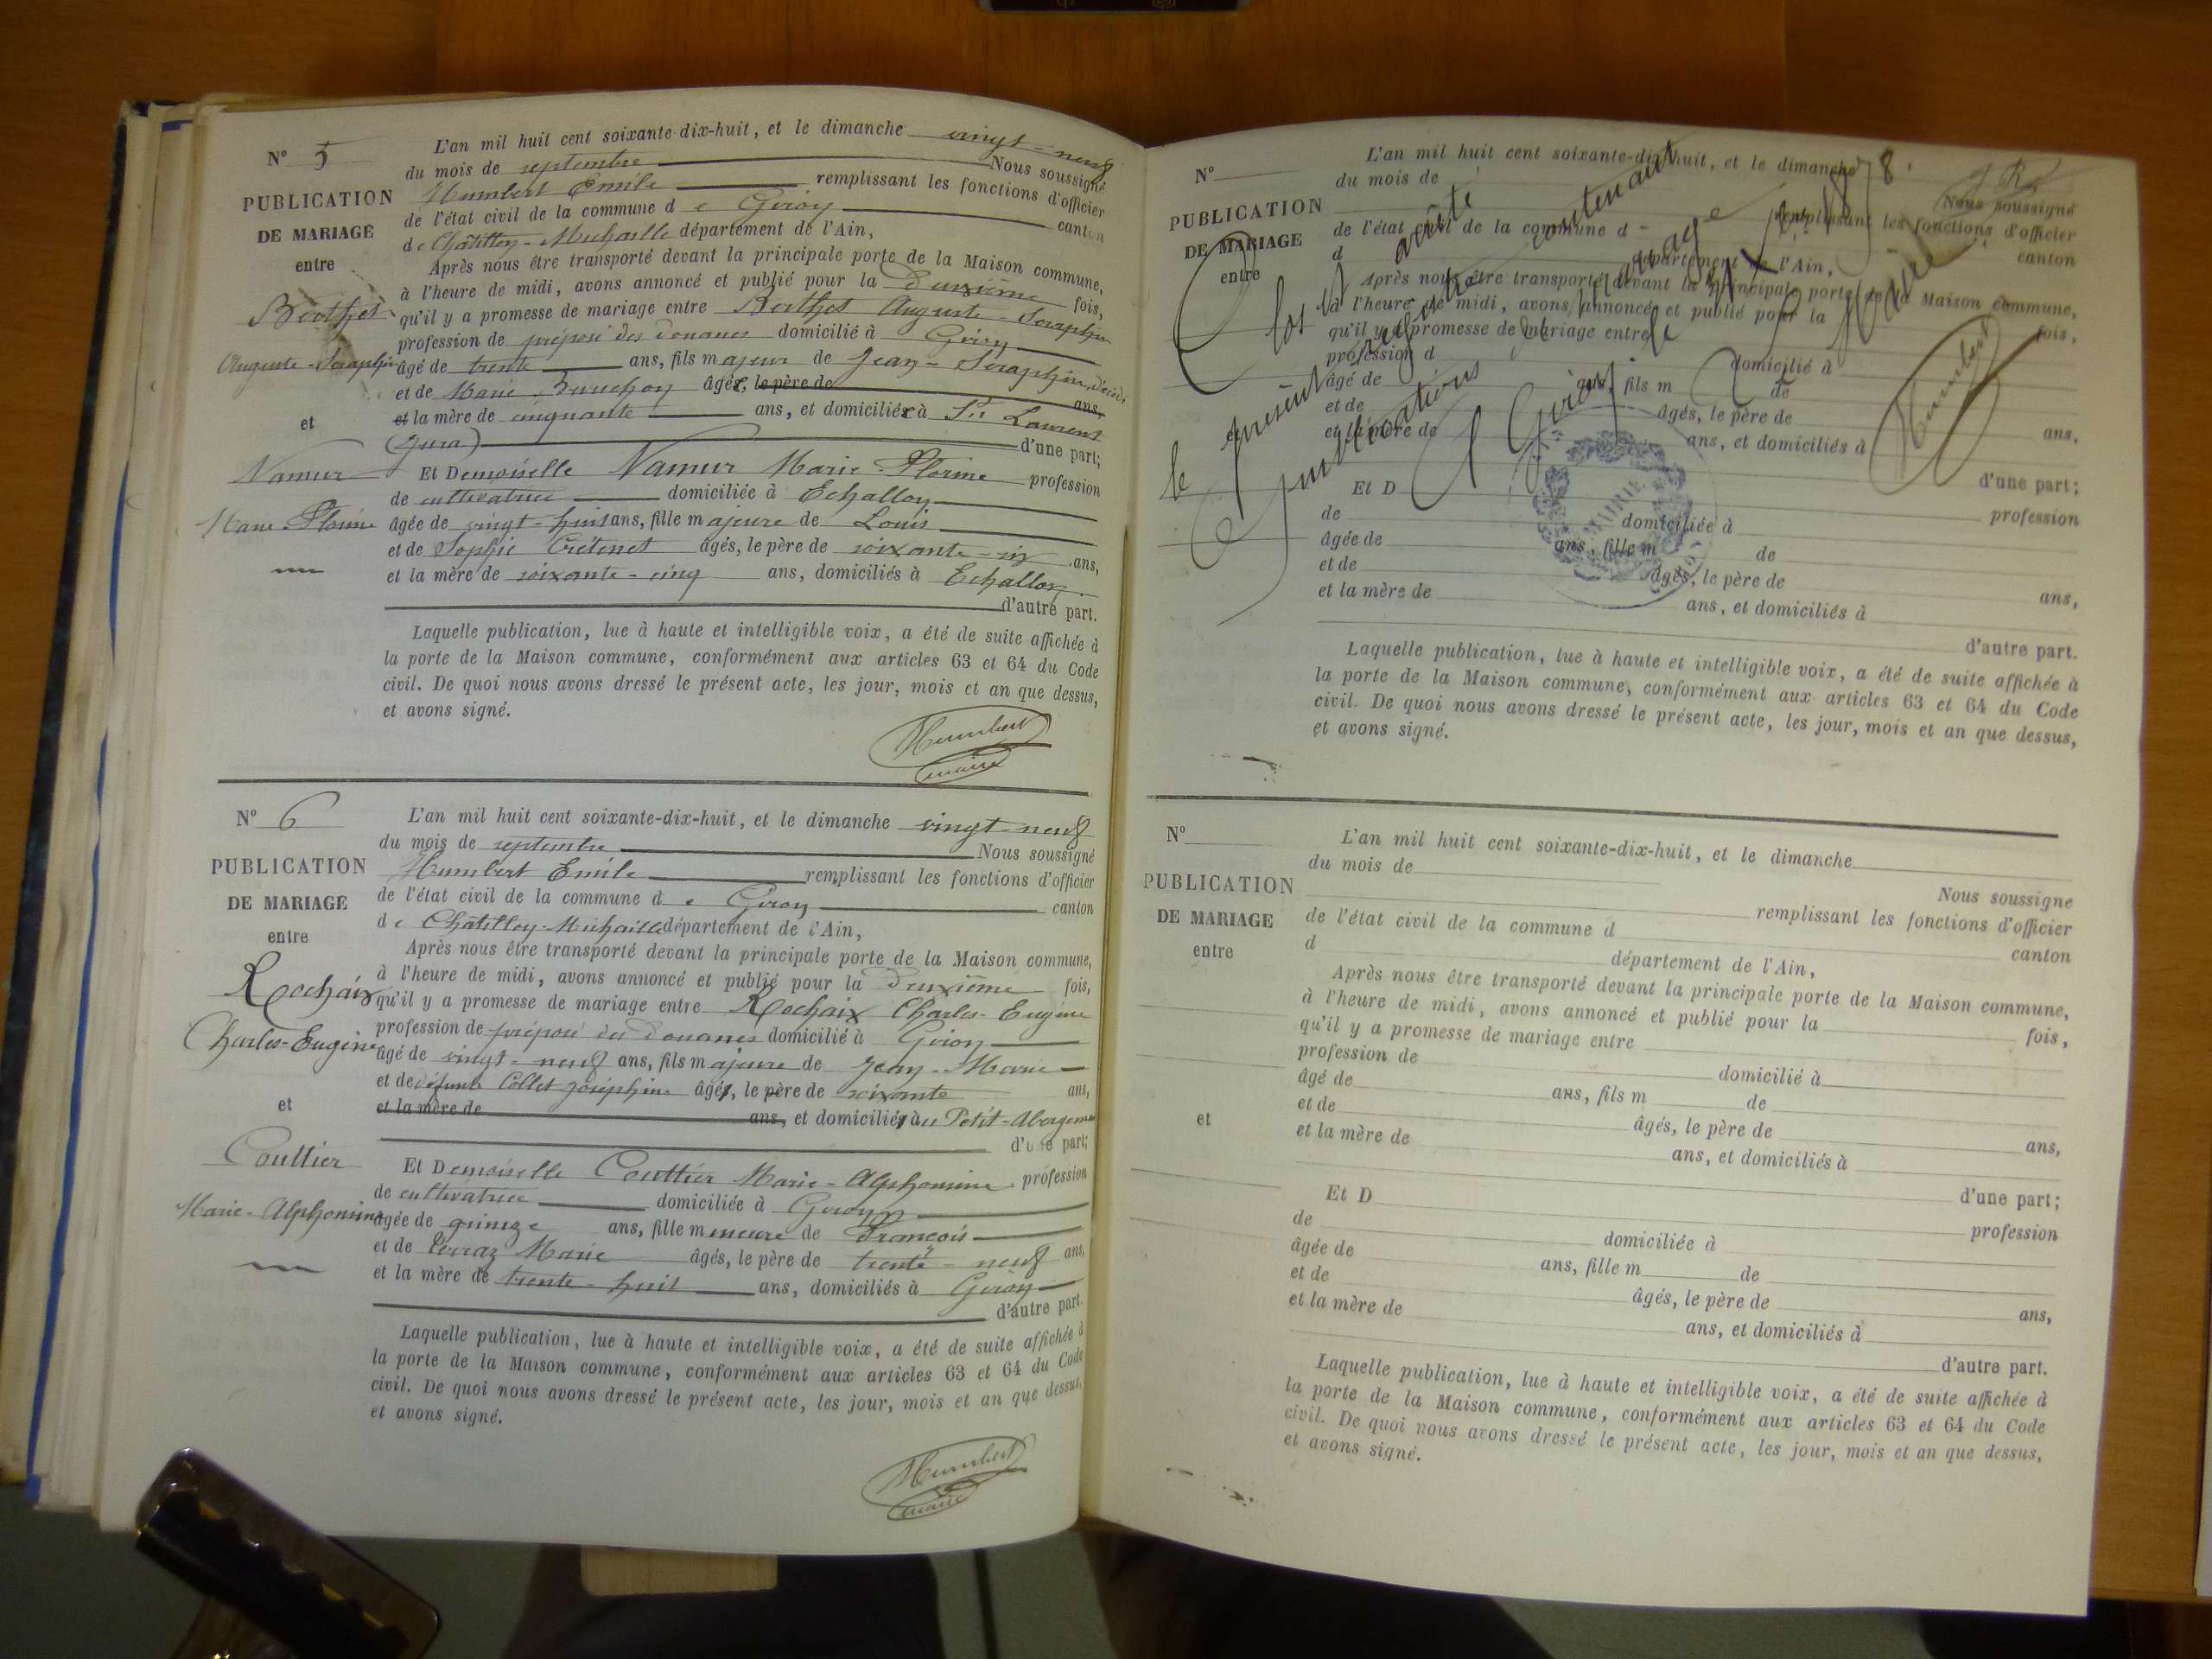 N° 5
PUBLICATION
DE MARIAGE
entre
Berthet
Auguste-Seraphin
et
Namur
Marie-Florine
L'an mil huit cent soixante-dix-huit, et le dimanche vingt-neuf
du mois de septembre Nous soussigné
Humbert Emile remplissant les fonctions d'officier
de l'état civil de la commune de Giron canton
de Châtillon-Michaille département de l'Ain,
Après nous être transporté devant la principale porte de la Maison commune,
à l'heure de midi, avons annoncé et publié pour la Deuxième fois,
qu'il y a promesse de mariage entre Berthet Auguste-Seraphin
profession de préposé des douanes domicilié à Giron
âgé de trente ans, fils majeur de Jean-Seraphin, décédé
et de Marie âgés, le père de ans,
et la mère de cinquante ans, et domiciliés à St Laurent
(Jura) d'une part;
Et Demoiselle Namur Marie-Florine profession
de cultivatrice domiciliée à Echallon
âgée de vingt-huit ans, fille majeure de Louis
et de Sophie Crétinet âgés, le père de soixante-six ans,
et la mère de soixante-cinq ans, domiciliés à Echallon
d'autre part.
Laquelle publication, lue à haute et intelligible voix, a été de suite affichée à
la porte de la Maison commune, conformément aux articles 63 et 64 du Code
civil. De quoi nous avons dressé le présent acte, les jour, mois et an que dessus,
et avons signé.
Humbert
maire
N° 6
PUBLICATION
DE MARIAGE
entre
Rochaix
Charles-Eugène
et
Couttier
Marie-Alphonsine
L'an mil huit cent soixante-dix-huit, et le dimanche vingt-neuf
du mois de septembre Nous soussigné
Humbert Emile remplissant les fonctions d'officier
de l'état civil de la commune de Giron canton
de Châtillon-Michaille département de l'Ain,
Après nous être transporté devant la principale porte de la Maison commune,
à l'heure de midi, avons annoncé et publié pour la Deuxième fois,
qu'il y a promesse de mariage entre Rochaix Charles-Eugène
profession de préposé des douanes domicilié à Giron
âgé de vingt-neuf ans, fils majeure de Jean-Marie
et de défunte Collet Joséphine âgés, le père de soixante ans,
et la mère de ans, et domiciliés au Petit-Abergement
d'une part;
Et Demoiselle Couttier Marie-Alphonsine profession
de cultivatrice domiciliée à Giron
âgée de quinze ans, fille mineure de François
et de Perraz Marie âgés, le père de trente-neuf ans,
et la mère de trente-huit ans, domiciliés à Giron
d'autre part.
Laquelle publication, lue à haute et intelligible voix, a été de suite affichée à
la porte de la Maison commune, conformément aux articles 63 et 64 du Code
civil. De quoi nous avons dressé le présent acte, les jour, mois et an que dessus,
et avons signé.
Humbert
maire
N°
PUBLICATION
DE MARIAGE
entre
L'an mil huit cent soixante-dix-huit, et le dimanche
du mois de Nous soussigné
remplissant les fonctions d'officier
de l'état civil de la commune d canton
d département de l'Ain,
Après nous être transporté devant la principale porte de la Maison commune,
à l'heure de midi, avons annoncé et publié pour la fois,
qu'il y a promesse de mariage entre
profession d domicilié à
âgé de ans, fils m de
et de âgés, le père de ans,
et la mère de ans, et domiciliés à
d'une part;
Et D profession
de domiciliée à
âgée de ans, fille m de
et de âgés, le père de ans,
et la mère de ans, et domiciliés à
d'autre part.
Laquelle publication, lue à haute et intelligible voix, a été de suite affichée à
la porte de la Maison commune, conformément aux articles 63 et 64 du Code
civil. De quoi nous avons dressé le présent acte, les jour, mois et an que dessus,
et avons signé.
Clos et arrêté
le présent registre contenant
Publications de mariage
A Giron, le 31 1878.
Le Maire
Humbert
MAIRIE
N°
PUBLICATION
DE MARIAGE
entre
et
L'an mil huit cent soixante-dix-huit, et le dimanche
du mois de Nous soussigné
remplissant les fonctions d'officier
de l'état civil de la commune d canton
d département de l'Ain,
Après nous être transporté devant la principale porte de la Maison commune,
à l'heure de midi, avons annoncé et publié pour la fois,
qu'il y a promesse de mariage entre
profession de domicilié à
âgé de ans, fils m de
et de âgés, le père de ans,
et la mère de ans, et domiciliés à
d'une part;
Et D profession
de domiciliée à
âgée de ans, fille m de
et de âgés, le père de ans,
et la mère de ans, et domiciliés à
d'autre part.
Laquelle publication, lue à haute et intelligible voix, a été de suite affichée à
la porte de la Maison commune, conformément aux articles 63 et 64 du Code
civil. De quoi nous avons dressé le présent acte, les jour, mois et an que dessus,
et avons signé.